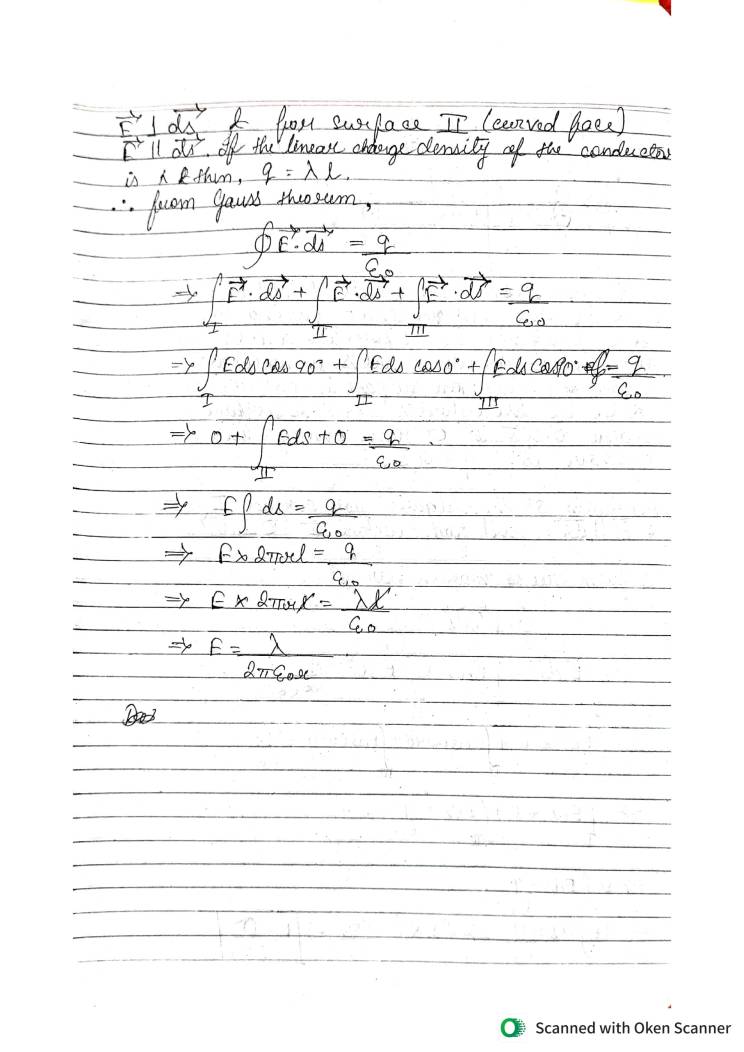 E⃗ ⊥ ds⃗ & for surface II (curved face)
E⃗ || ds⃗. If the linear charge density of the conductor
is λ & then, q = λl.
∴ from Gauss theorem,
∮E⃗·ds⃗ = q/ε₀
⇒ ∫_I E⃗·ds⃗ + ∫_II E⃗·ds⃗ + ∫_III E⃗·ds⃗ = q/ε₀
⇒ ∫_I Eds cos 90° + ∫_II Eds cos0° + ∫_III Eds cos90° = q/ε₀
⇒ 0 + ∫_II Eds + 0 = q/ε₀
⇒ E∫ ds = q/ε₀
⇒ E × 2πrl = q/ε₀
⇒ E × 2πrl = λl/ε₀
⇒ E = λ/2πε₀r
Scanned with Oken Scanner